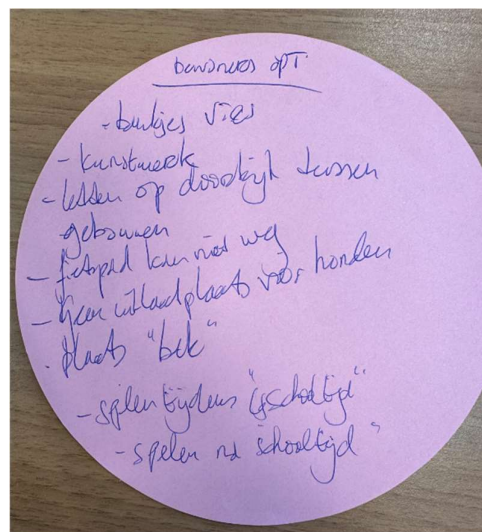 bewoners opT.
- bankjes vies
- kunstwerk
- letten op doorkijk tussen
gebouwen
- fietspad kan niet weg
- geen uitlaatplaats voor honden
. plaats "bek"
- spelen tijdens "schooltijd"
- spelen na schooltijd"